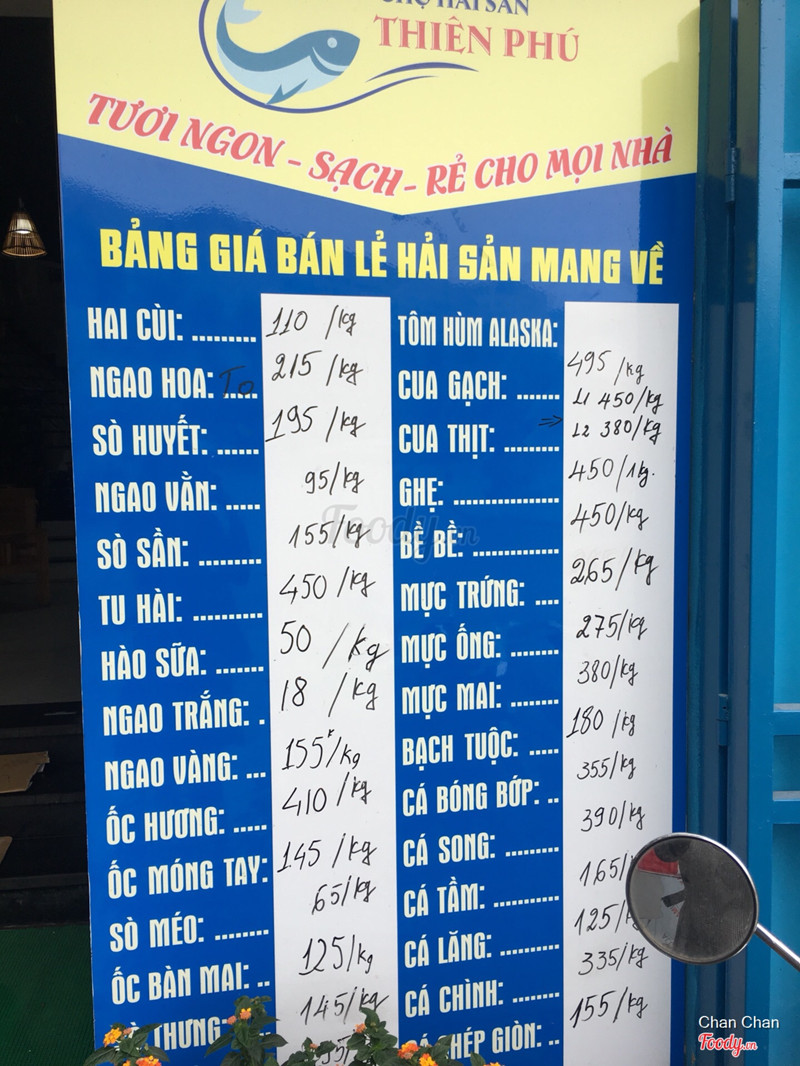 CHỢ HẢI SẢN
THIÊN PHÚ
TƯƠI NGON - SẠCH - RẺ CHO MỌI NHÀ
BẢNG GIÁ BÁN LẺ HẢI SẢN MANG VỀ
HAI CÙI: ......... 110 /kg
NGAO HOA: To .... 215 /kg
SÒ HUYẾT: ...... 195 /kg
NGAO VẰN: ..... 95/kg
SÒ SẦN: ......... 155/kg
TU HÀI: .......... 450 /kg
HÀO SỮA: ....... 50 /kg
NGAO TRẮNG: . 18 /kg
NGAO VÀNG: ... 155k/kg
ỐC HƯƠNG: ..... 410 /kg
ỐC MÓNG TAY: 145 /kg
SÒ MÉO: ........ 65/kg
ỐC BÀN MAI: .. 125/kg
THƯNG: 145/kg
TÔM HÙM ALASKA:
CUA GẠCH: ....... 495/kg
L1 450/kg
CUA THỊT: ......... ⇒ L2 380/kg
GHẸ: ................. 450/1kg.
BỀ BỀ: .............. 450/kg
MỰC TRỨNG: .... 265/kg
MỰC ỐNG: ....... 275/kg
MỰC MAI: ........ 380/kg
BẠCH TUỘC: ..... 180 /kg
CÁ BÓNG BỚP: .. 355/kg
CÁ SONG: ......... 390/kg
CÁ TẦM: ........... 165/
CÁ LĂNG: .......... 125/
CÁ CHÌNH: ........ 335/kg
CHÉP GIÒN: .. 155/kg
Foody.vn
Chan Chan
Foody.vn